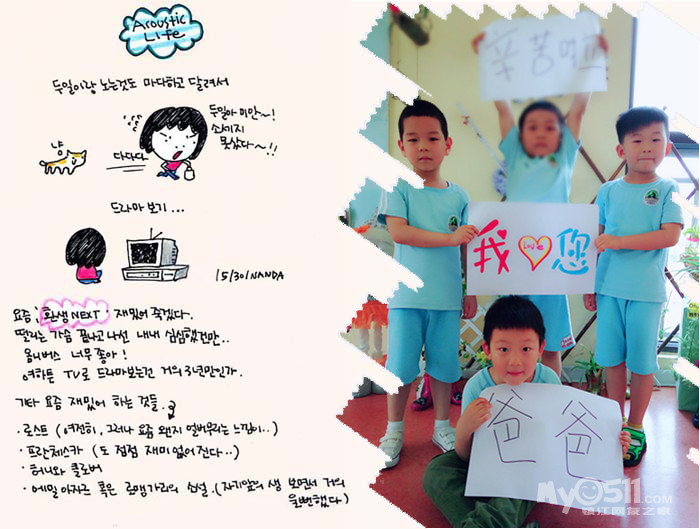 Acoustic
Life
두일이랑 노는것도 마다하고 달려서
냥
다다다
두일아 미안~!
소세지
못샀다~!!
드라마 보기...
15/30/NANDA
요즘, 환생NEXT, 재밌어 죽겠다.
떨리는 가슴 끝나고 나선 내내 심심했건만..
옴니버스 너무 좋아!
여하튼 TV로 드라마보는건 거의 3년만인가.
기타 요즘 재밌어 하는 것들.
·로스트 (여전히, 그러나 요즘 왠지 얼버무리는 느낌이..)
·프란체스카 (도 점점 재미 없어진다..)
·허니와 클로버
·에밀 아자르 혹은 로맹가리의 소설. (자기앞의 생 보면서 거의
울뻔했다)
辛苦啦
我 love 您
爸爸
My0511.com
镇江网友之家